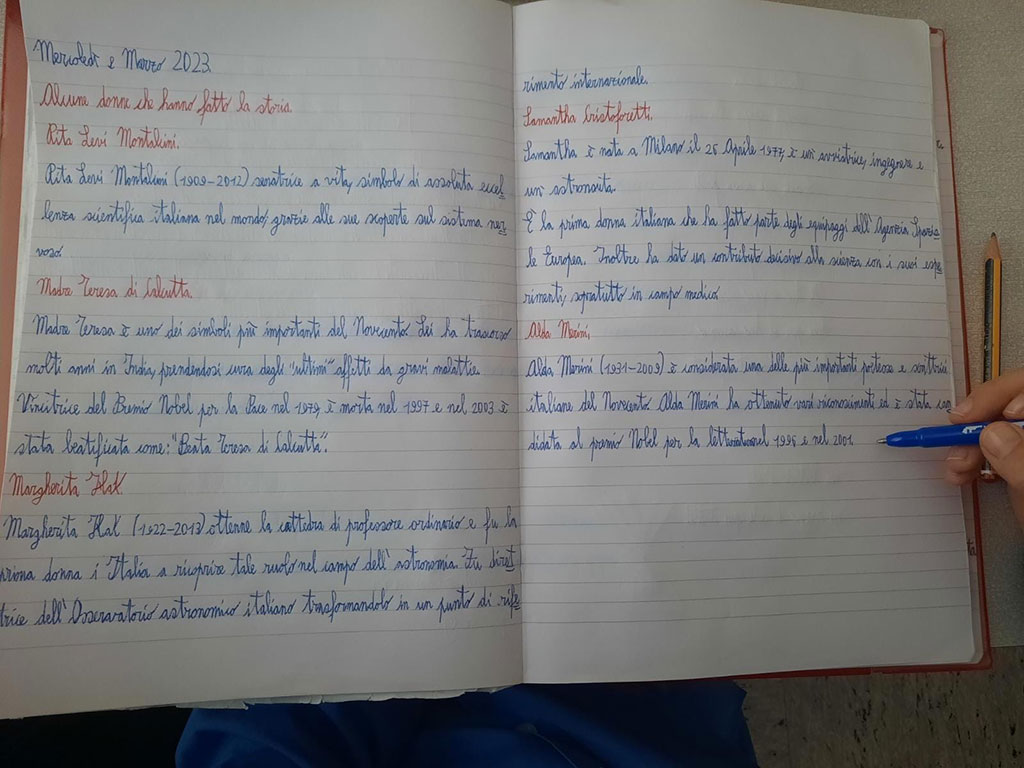 Mercoledì 8 Marzo 2023
Alcune donne che hanno fatto la storia.
Rita Levi Montalcini.
Rita Levi Montalcini (1909-2012) senatrice a vita, simbolo di assoluta eccel
lenza scientifica italiana nel mondo, grazie alle sue scoperte sul sistema ner
voso.
Madre Teresa di Calcutta.
Madre Teresa è uno dei simboli più importanti del Novecento. Lei ha trascorso
molti anni in India, prendendosi cura degli "ultimi" affetti da gravi malattie.
Vincitrice del Premio Nobel per la Pace nel 1979, è morta nel 1997 e nel 2003 è
stata beatificata come: "Beata Teresa di Calcutta".
Margherita Hak.
Margherita Hak (1922-2013) ottenne la cattedra di professore ordinario e fu la
prima donna i Italia a ricoprire tale ruolo nel campo dell'astronomia. Fu diret
trice dell'Osservatorio astronomico italiano trasformandolo in un punto di rife
rimento internazionale.
Samantha Cristoforetti.
Samantha è nata a Milano il 26 Aprile 1977, è un'avviatrice, ingegnere e
un'astronauta.
È la prima donna italiana che ha fatto parte degli equipaggi dell'Agenzia Spazia
le Europea. Inoltre ha dato un contributo decisivo alla scienza con i suoi espe
rimenti, sopratutto in campo medico.
Alda Merini.
Alda Merini (1931-2009) è considerata una delle più importanti poetesse e scrittrici
italiane del Novecento. Alda Merini ha ottenuto vari riconoscimenti ed è stata can
didata al premio Nobel per la nel 1996 e nel 2001